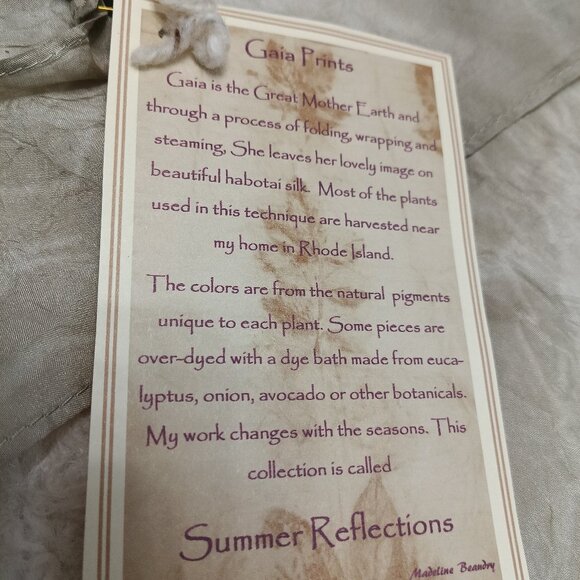 Gaia Prints
Gaia is the Great Mother Earth and
through a process of folding, wrapping and
steaming, She leaves her lovely image on
beautiful habotai silk. Most of the plants
used in this technique are harvested near
my home in Rhode Island.
The colors are from the natural pigments
unique to each plant. Some pieces are
over-dyed with a dye bath made from euca-
lyptus, onion, avocado or other botanicals.
My work changes with the seasons. This
collection is called
Summer Reflections
Madeline Beaudry